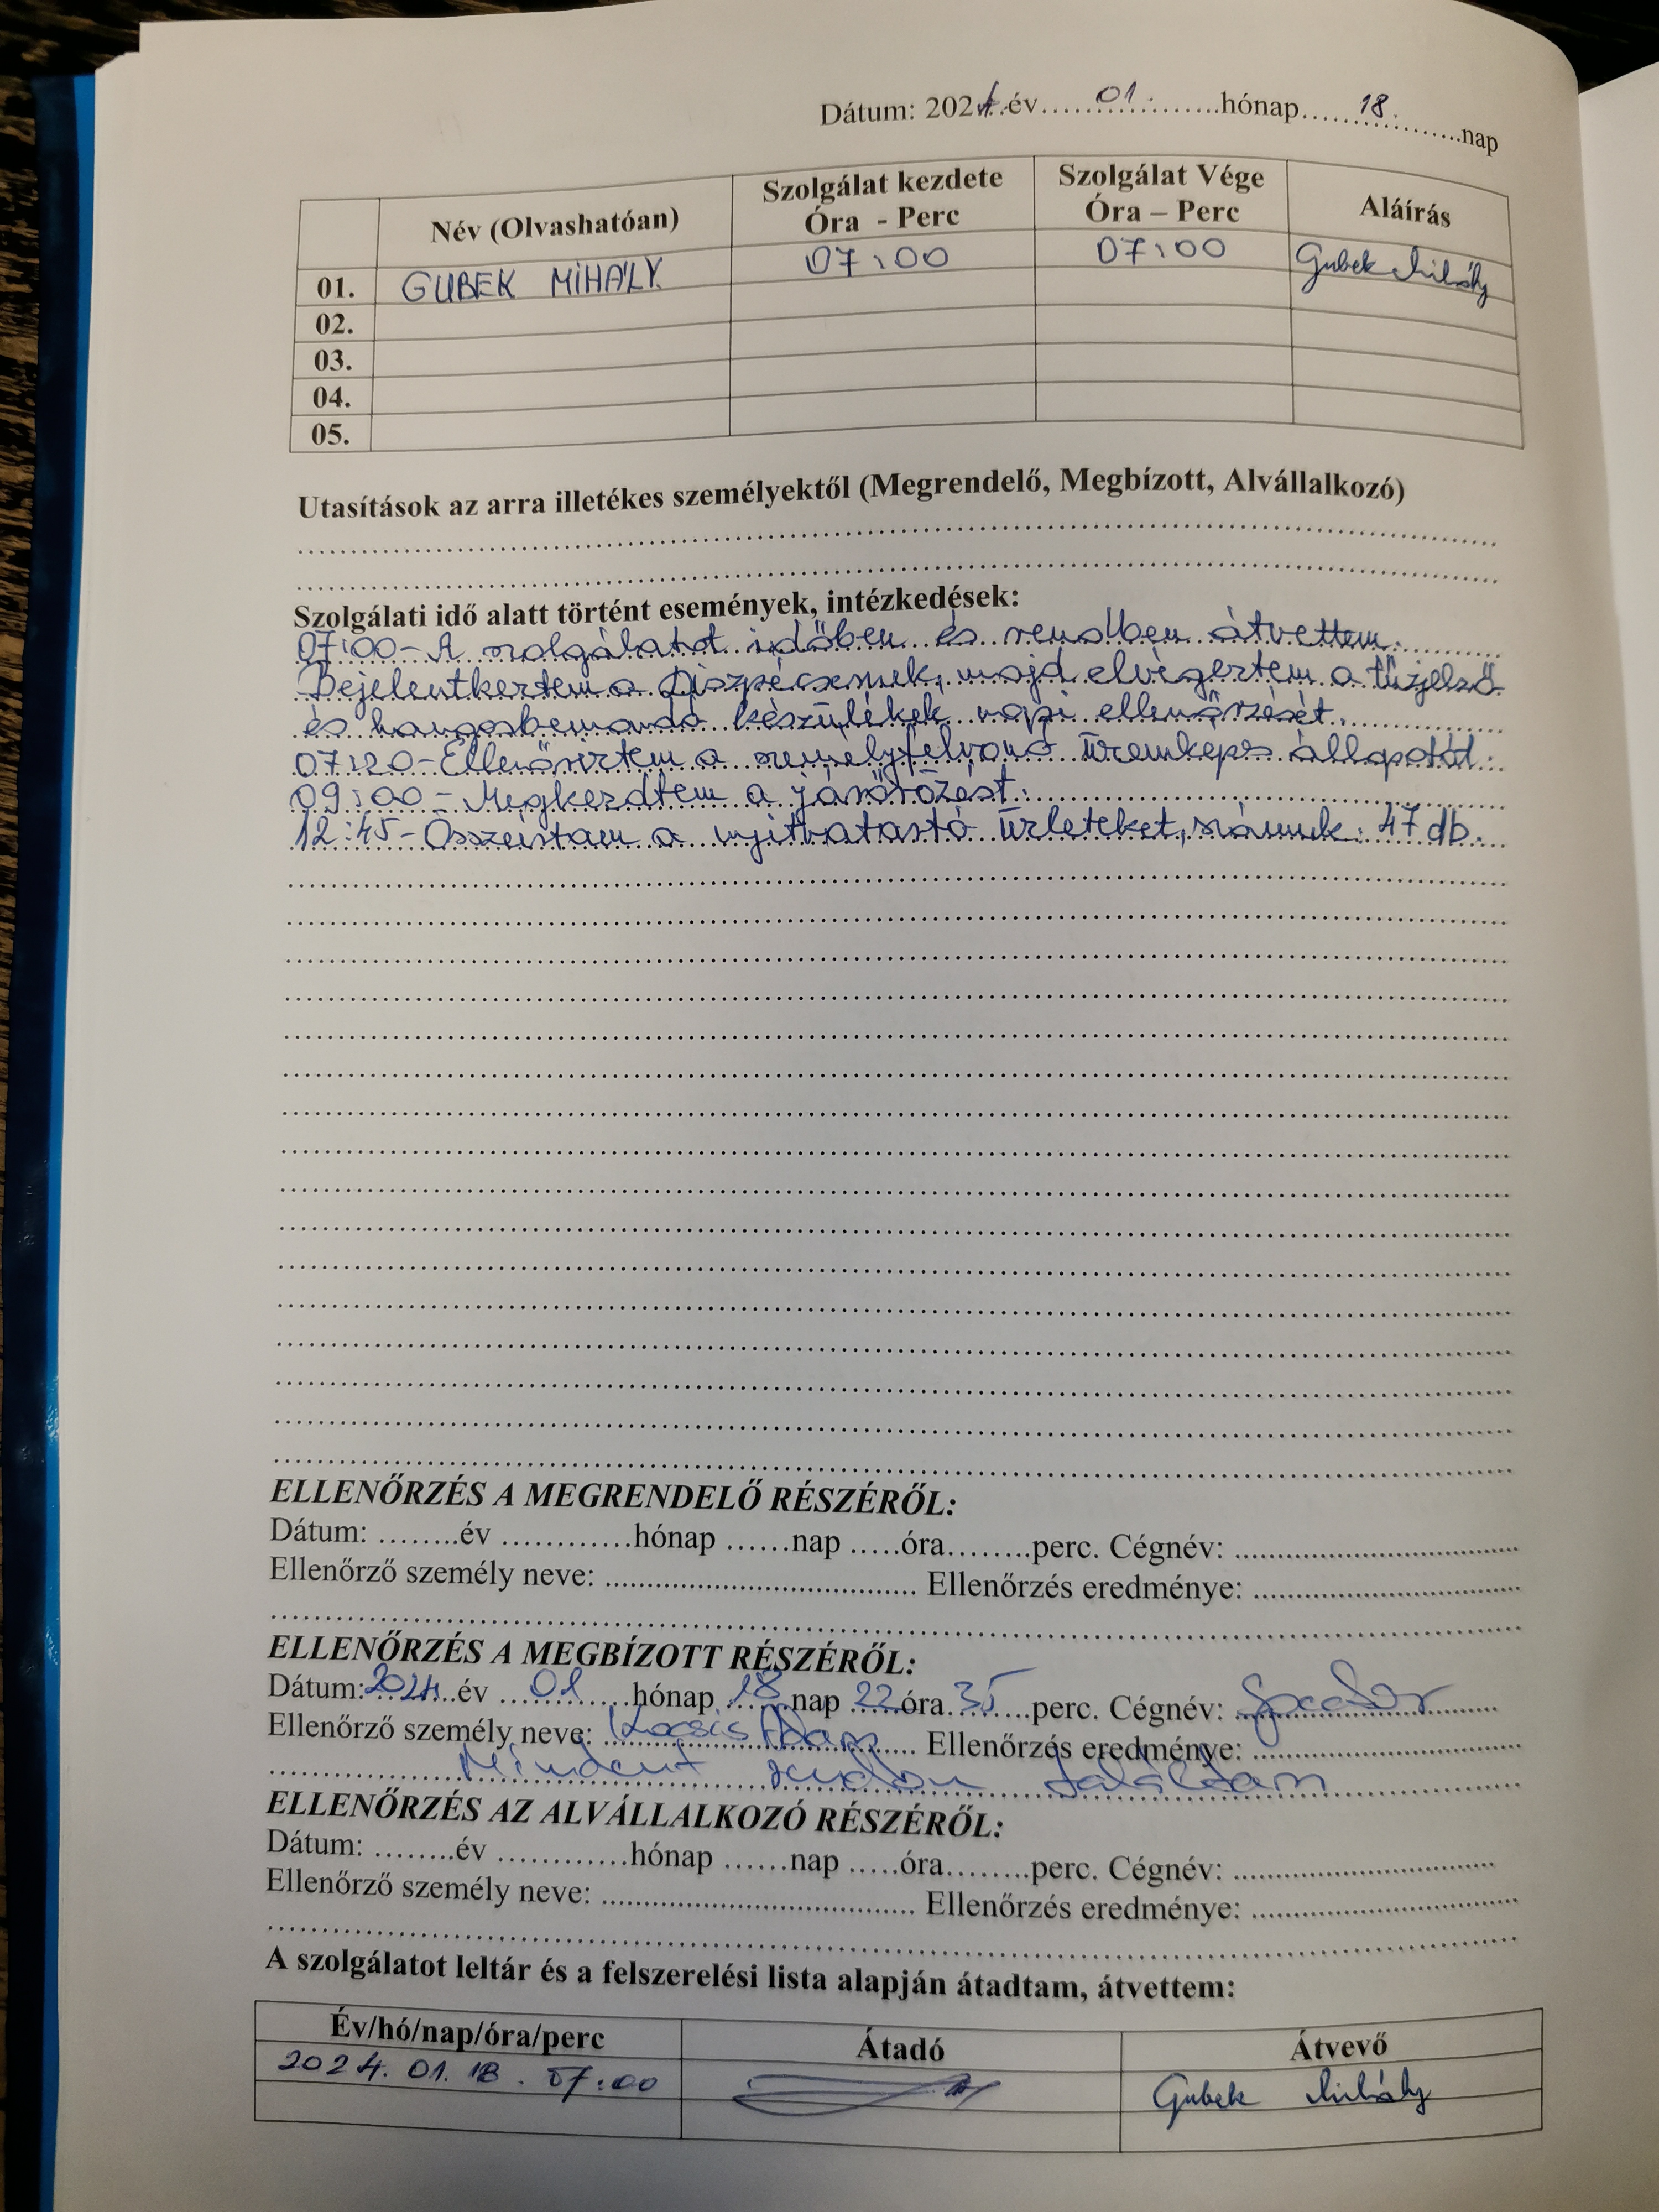 Dátum: 2024 év 01. hónap 18. nap
Név (Olvashatóan) Szolgálat kezdete Óra - Perc Szolgálat Vége Óra – Perc Aláírás
01. GUBEK MIHÁLY 07:00 07:00 Gubek Mihály
02.
03.
04.
05.
Utasítások az arra illetékes személyektől (Megrendelő, Megbízott, Alvállalkozó)
Szolgálati idő alatt történt események, intézkedések:
07:00-A szolgálatot időben és rendben átvettem.
Bejelentkeztem a Diszpécsernek, majd elvégeztem a tűzjelző
és hangosbemondó készülékek napi ellenőrzését.
07:20-Ellenőriztem a személyfelvonó üzemképes állapotát.
09:00-Megkezdtem a járőrözést.
12:45-Összeírtam a nyitvatartó üzleteket, számuk: 47 db.
ELLENŐRZÉS A MEGRENDELŐ RÉSZÉRŐL:
Dátum: ........év ............hónap ......nap .....óra........perc. Cégnév:
Ellenőrző személy neve: Ellenőrzés eredménye:
ELLENŐRZÉS A MEGBÍZOTT RÉSZÉRŐL:
Dátum: 2024 év 01 hónap 18 nap 22 óra 35 perc. Cégnév:
Ellenőrző személy neve: Kocsis Ádám Ellenőrzés eredménye:
Mindent rendben találtam
ELLENŐRZÉS AZ ALVÁLLALKOZÓ RÉSZÉRŐL:
Dátum: ........év ............hónap ......nap .....óra........perc. Cégnév:
Ellenőrző személy neve: Ellenőrzés eredménye:
A szolgálatot leltár és a felszerelési lista alapján átadtam, átvettem:
Év/hó/nap/óra/perc Átadó Átvevő
2024. 01. 18. 07:00 Gubek Mihály